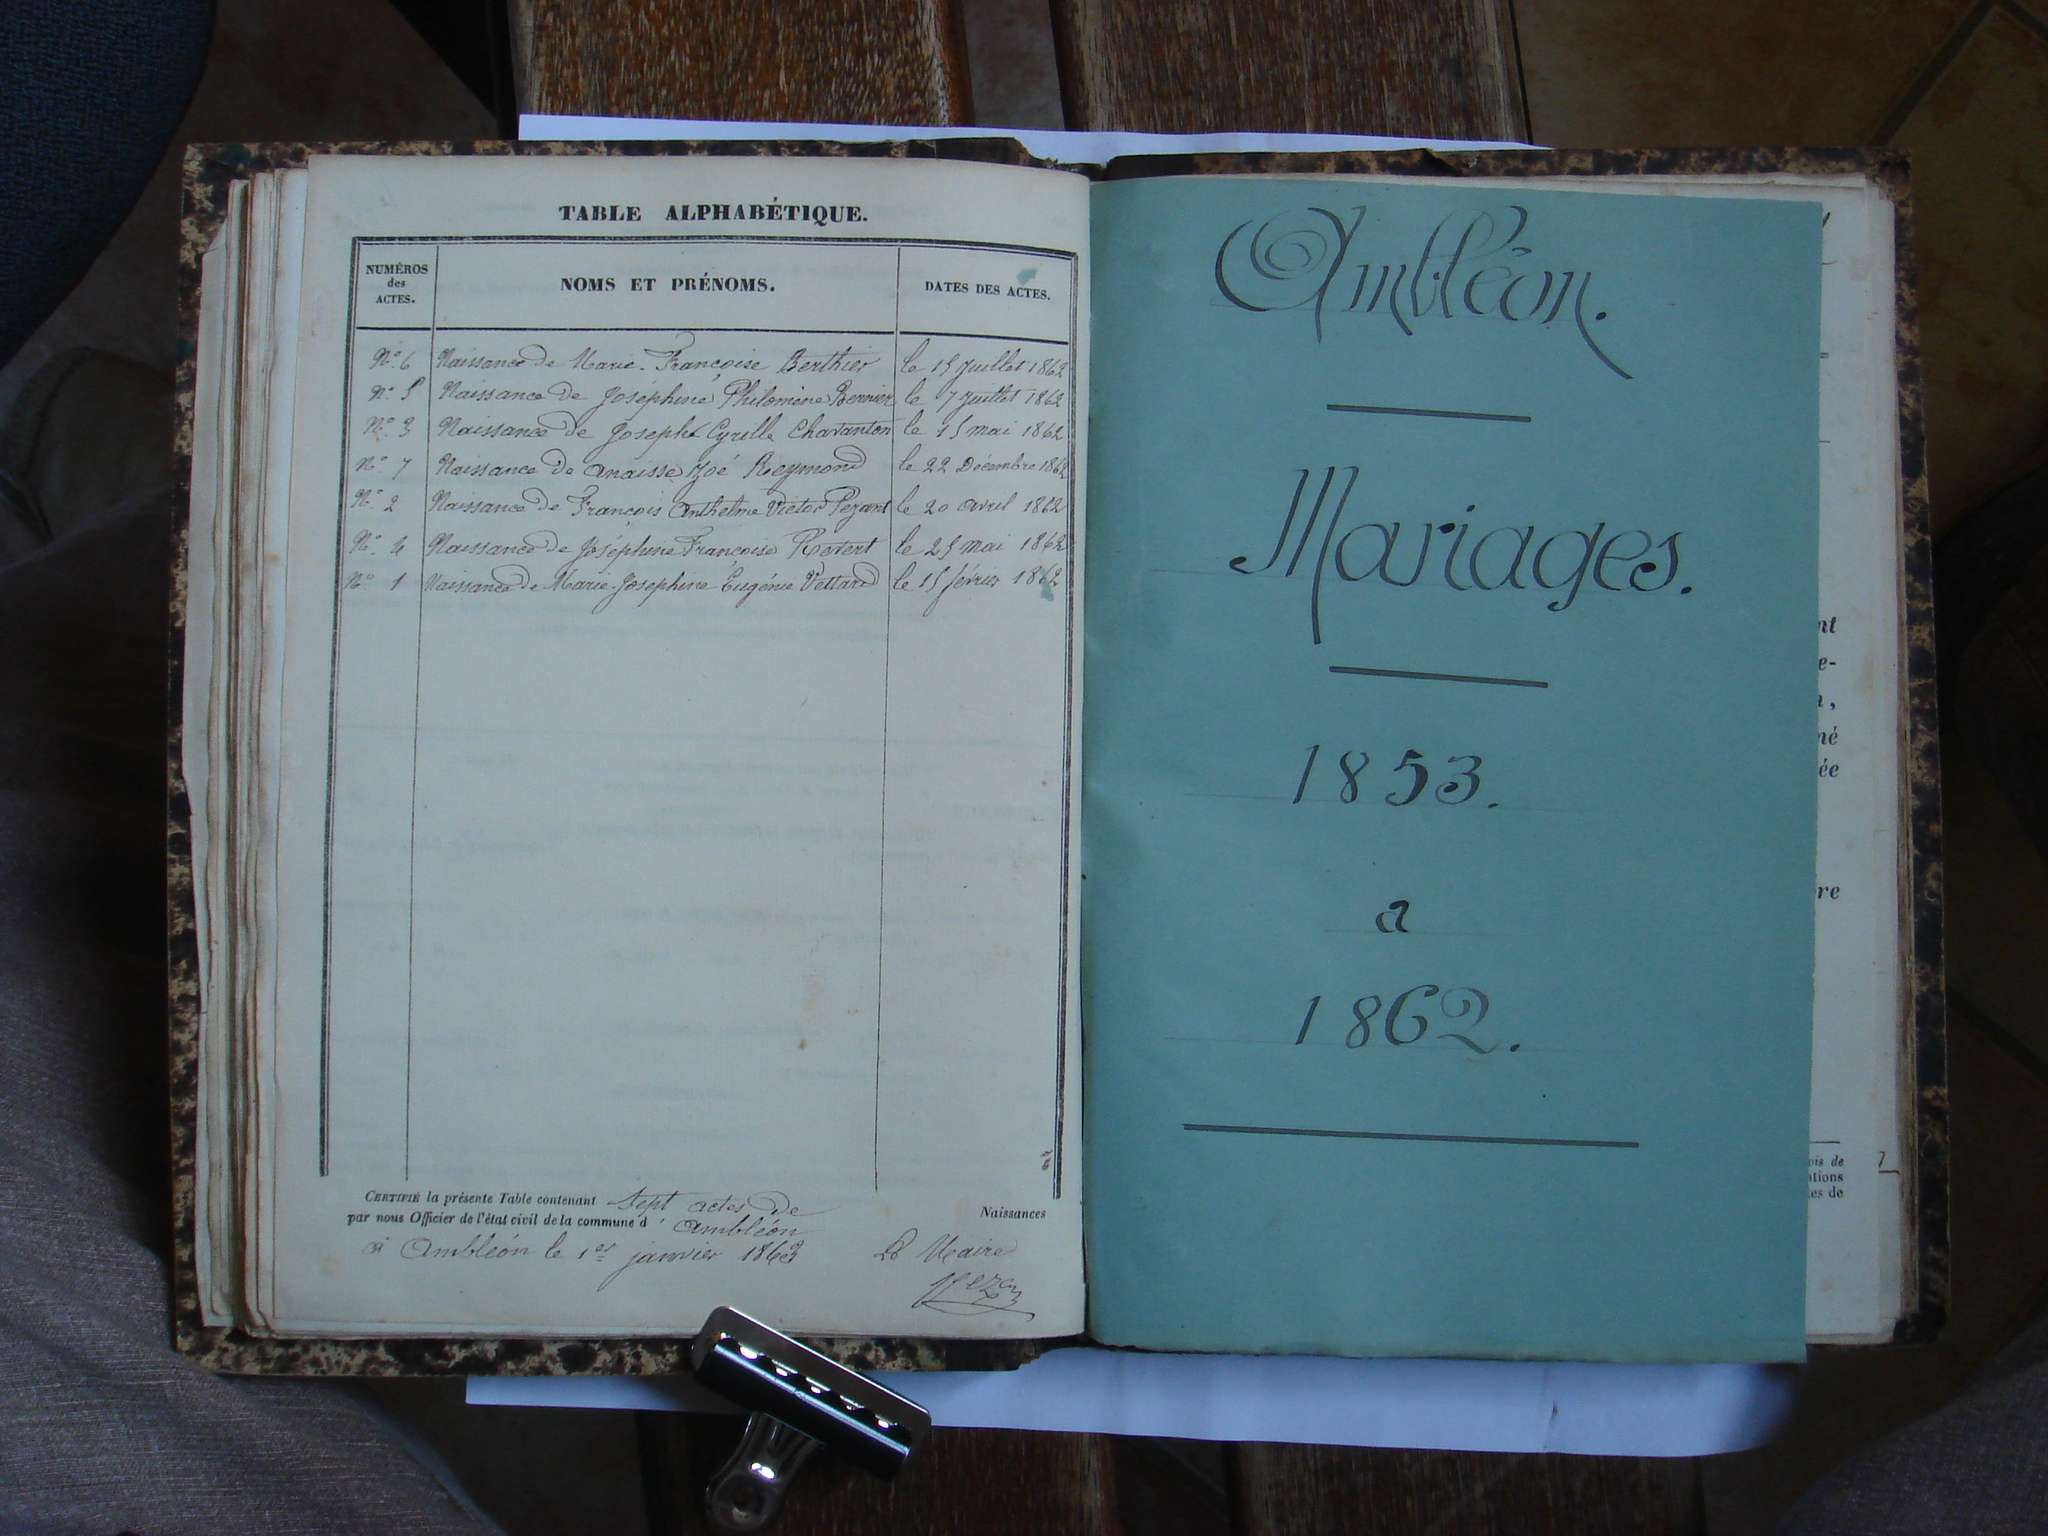 TABLE ALPHABÉTIQUE.
NUMÉROS des ACTES.
NOMS ET PRÉNOMS.
DATES DES ACTES.
No. 6 Naissance de Marie Françoise Berthier le 15 Juillet 1862
No. 5 Naissance de Joséphine Philomène Bernier le 7 Juillet 1862
No. 3 Naissance de Joseph Cyrille Chavanton le 15 mai 1862
No. 7 Naissance de anaisse Zoé Reymond le 22 Décembre 1862
No. 2 Naissance de François Anthelme Victor Pezant le 20 avril 1862
No. 4 Naissance de Joséphine Françoise Revert le 25 mai 1862
No. 1 Naissance de Marie Josephine Eugénie Vettard le 15 février 1862
CERTIFIÉ la présente Table contenant sept actes de Naissances
par nous Officier de l'état civil de la commune d' Ambléon
à Ambléon le 1er janvier 1863 Le Maire
Ambléon.
Mariages.
1853.
a
1862.
nt
e-
né
ée
re
ois de
itions
les de